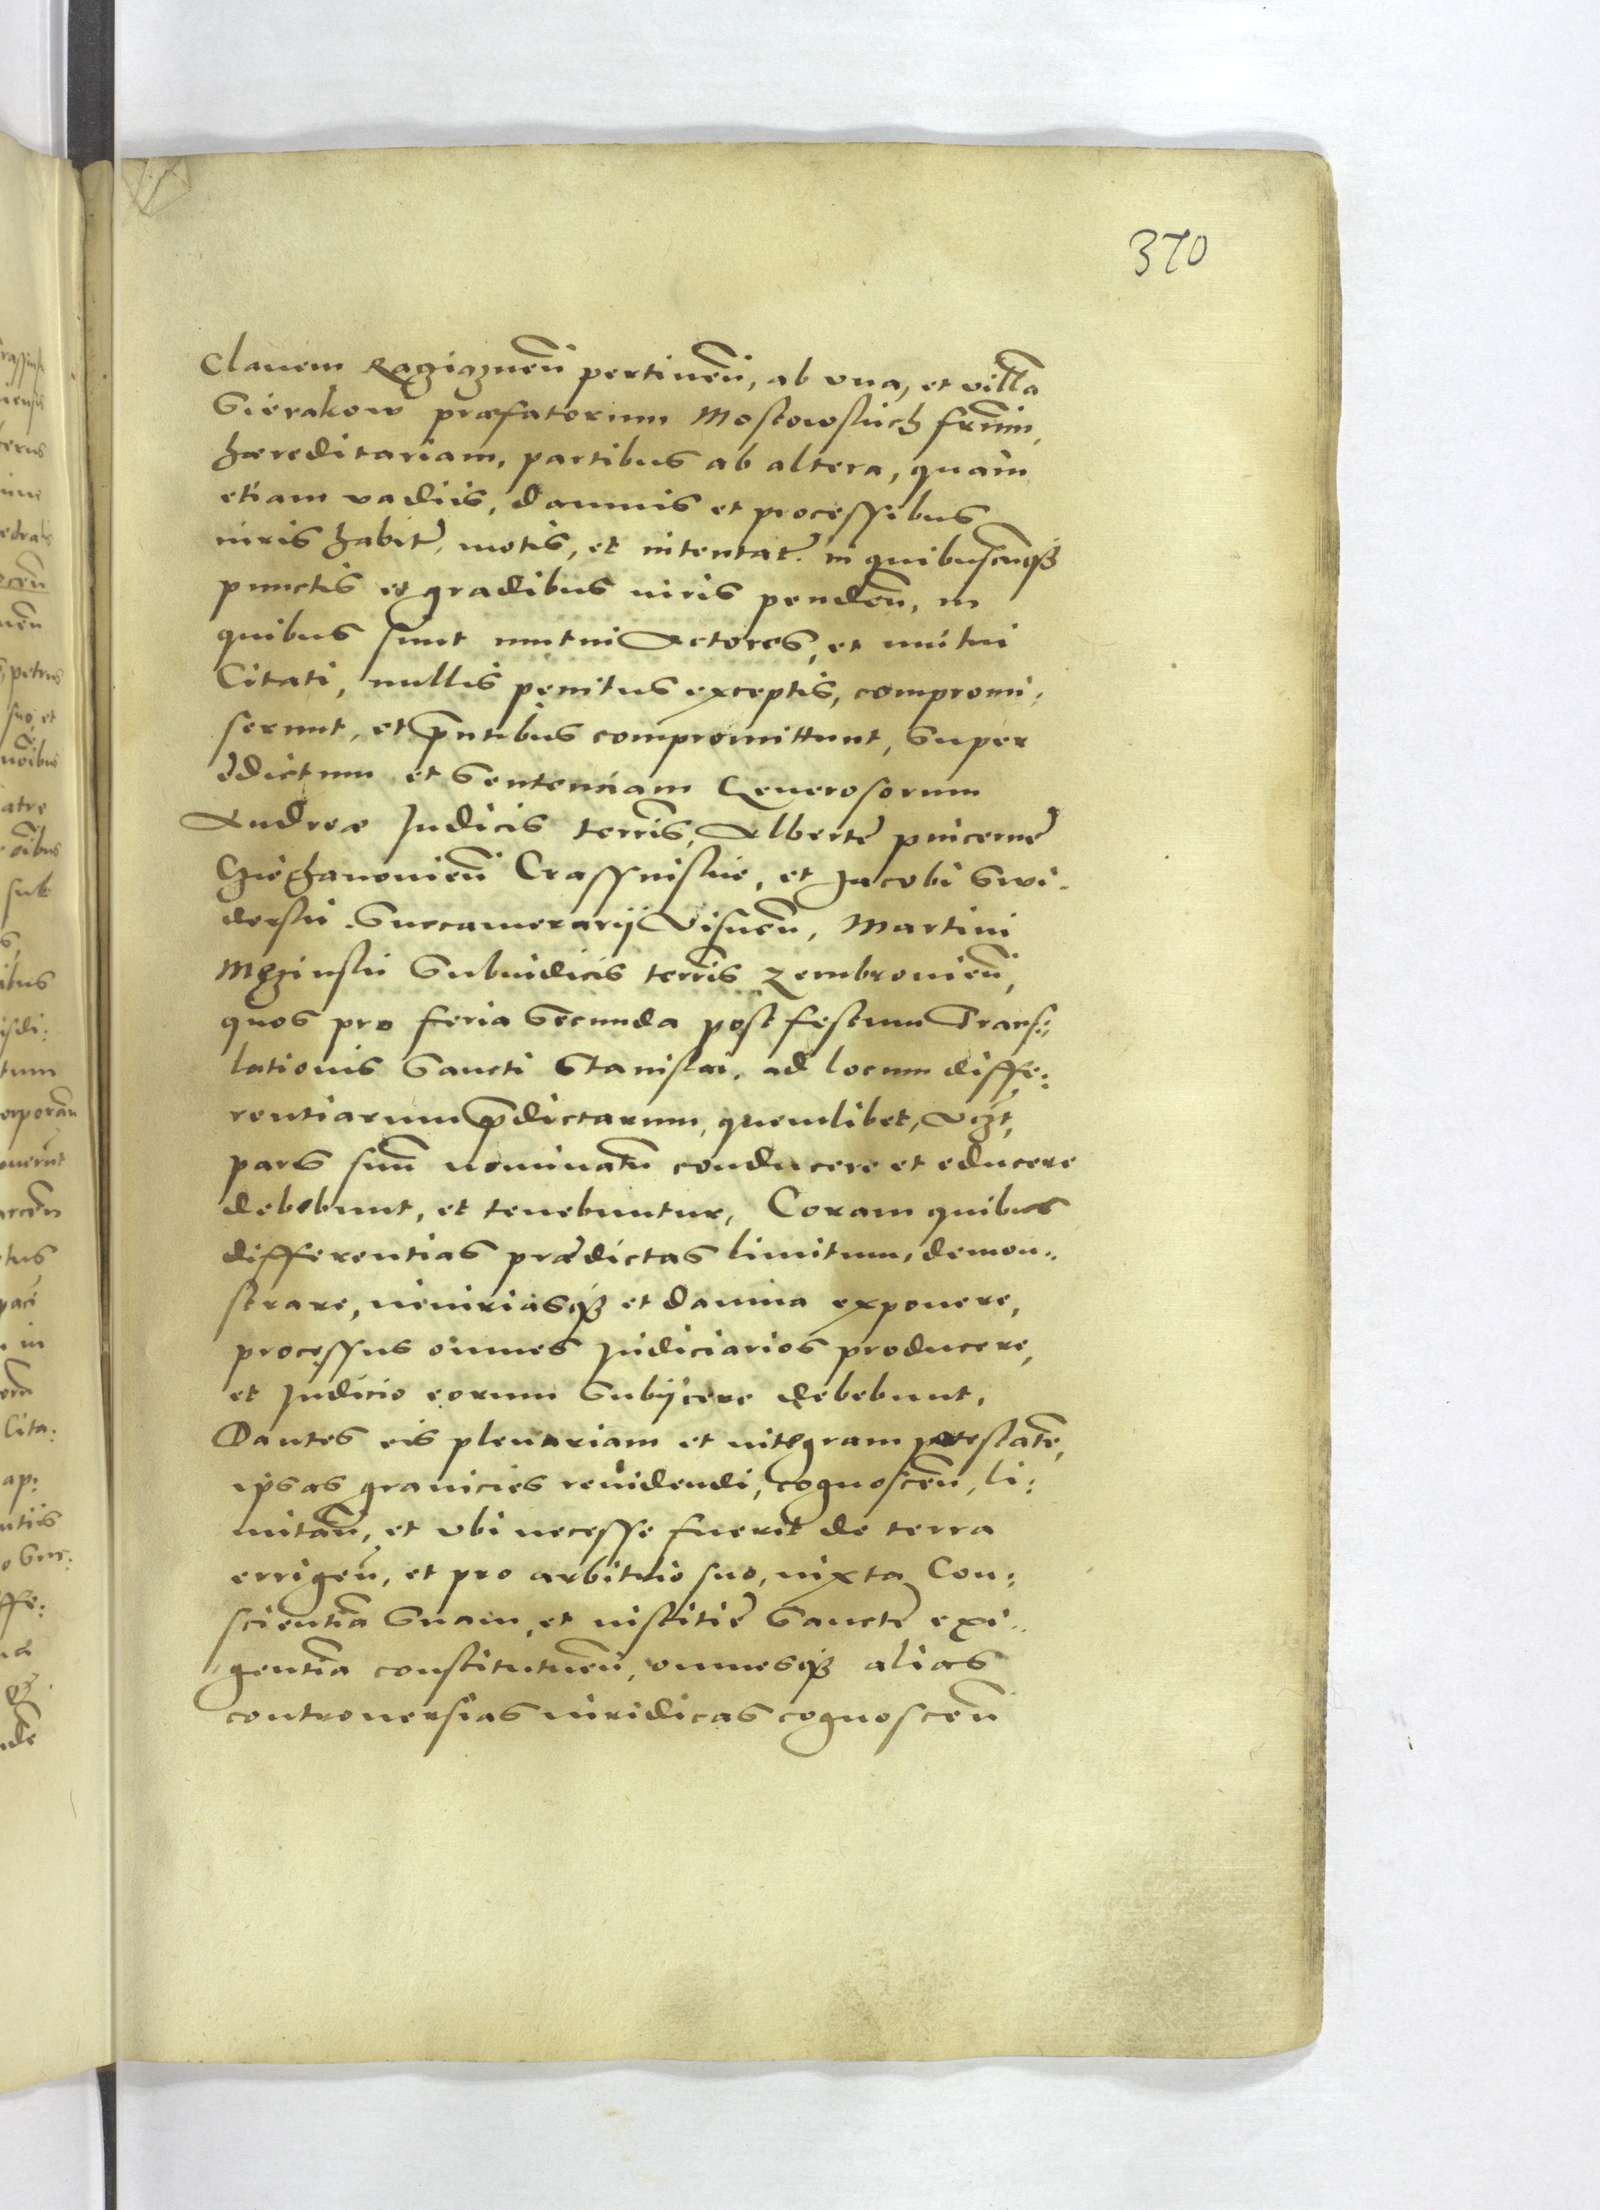 370
Clauem Raziaznen̄ pertinen̄, ab vna, et villā
Sierakow præfatorum Moscowskich frūm,
hæreditariam, partibus ab altera, quam
etiam vadiis, damnis et processibus
iuris habit', motis, et intentat'. in quibuscūqȝ
punctis et gradibus iuris penden̄, in
quibus sunt mutui Actores, et mutui
Citati, nullis penitus exceptis, compromi:
serunt, et p̄ntibus compromittunt, super
edictum et Sententiam Generosorum
Andreæ Judicis terrīs, Albertę pincernę
Ciechanouien̄ Crassniskie, et Jacobi Swi-
derski Succamerarij Visnen̄, Martini
Mdzinskii Subiudicis terrīs Zembrouien̄,
quos pro feria Secunda post festum Trans:
lationis Sancti Stanislai, ad locum diffe:
rentiarum p̄dictarum, quemlibet, vczt,
pars suū nominatū conducere et educere
debebunt, et tenebuntur, Coram quibus
differentias prædictas limitum, demon:
strare, iniuriasqȝ et damna exponere,
processus omnes Judiciarios producere,
et Judicio eorum Subijcere debebunt,
Dantes eis plenariam et integram potestatē,
ipsas granicies reuidendi, cognoscen̄, li:
mitan̄, et vbi necesse fuerit de terra
errigen̄, et pro arbitrio suo, iuxta Con:
scientiā Suam, et iustitię Sanctę exi:
gentiā constituen̄, omnesqȝ alias
controuersias iuridicas cognoscen̄